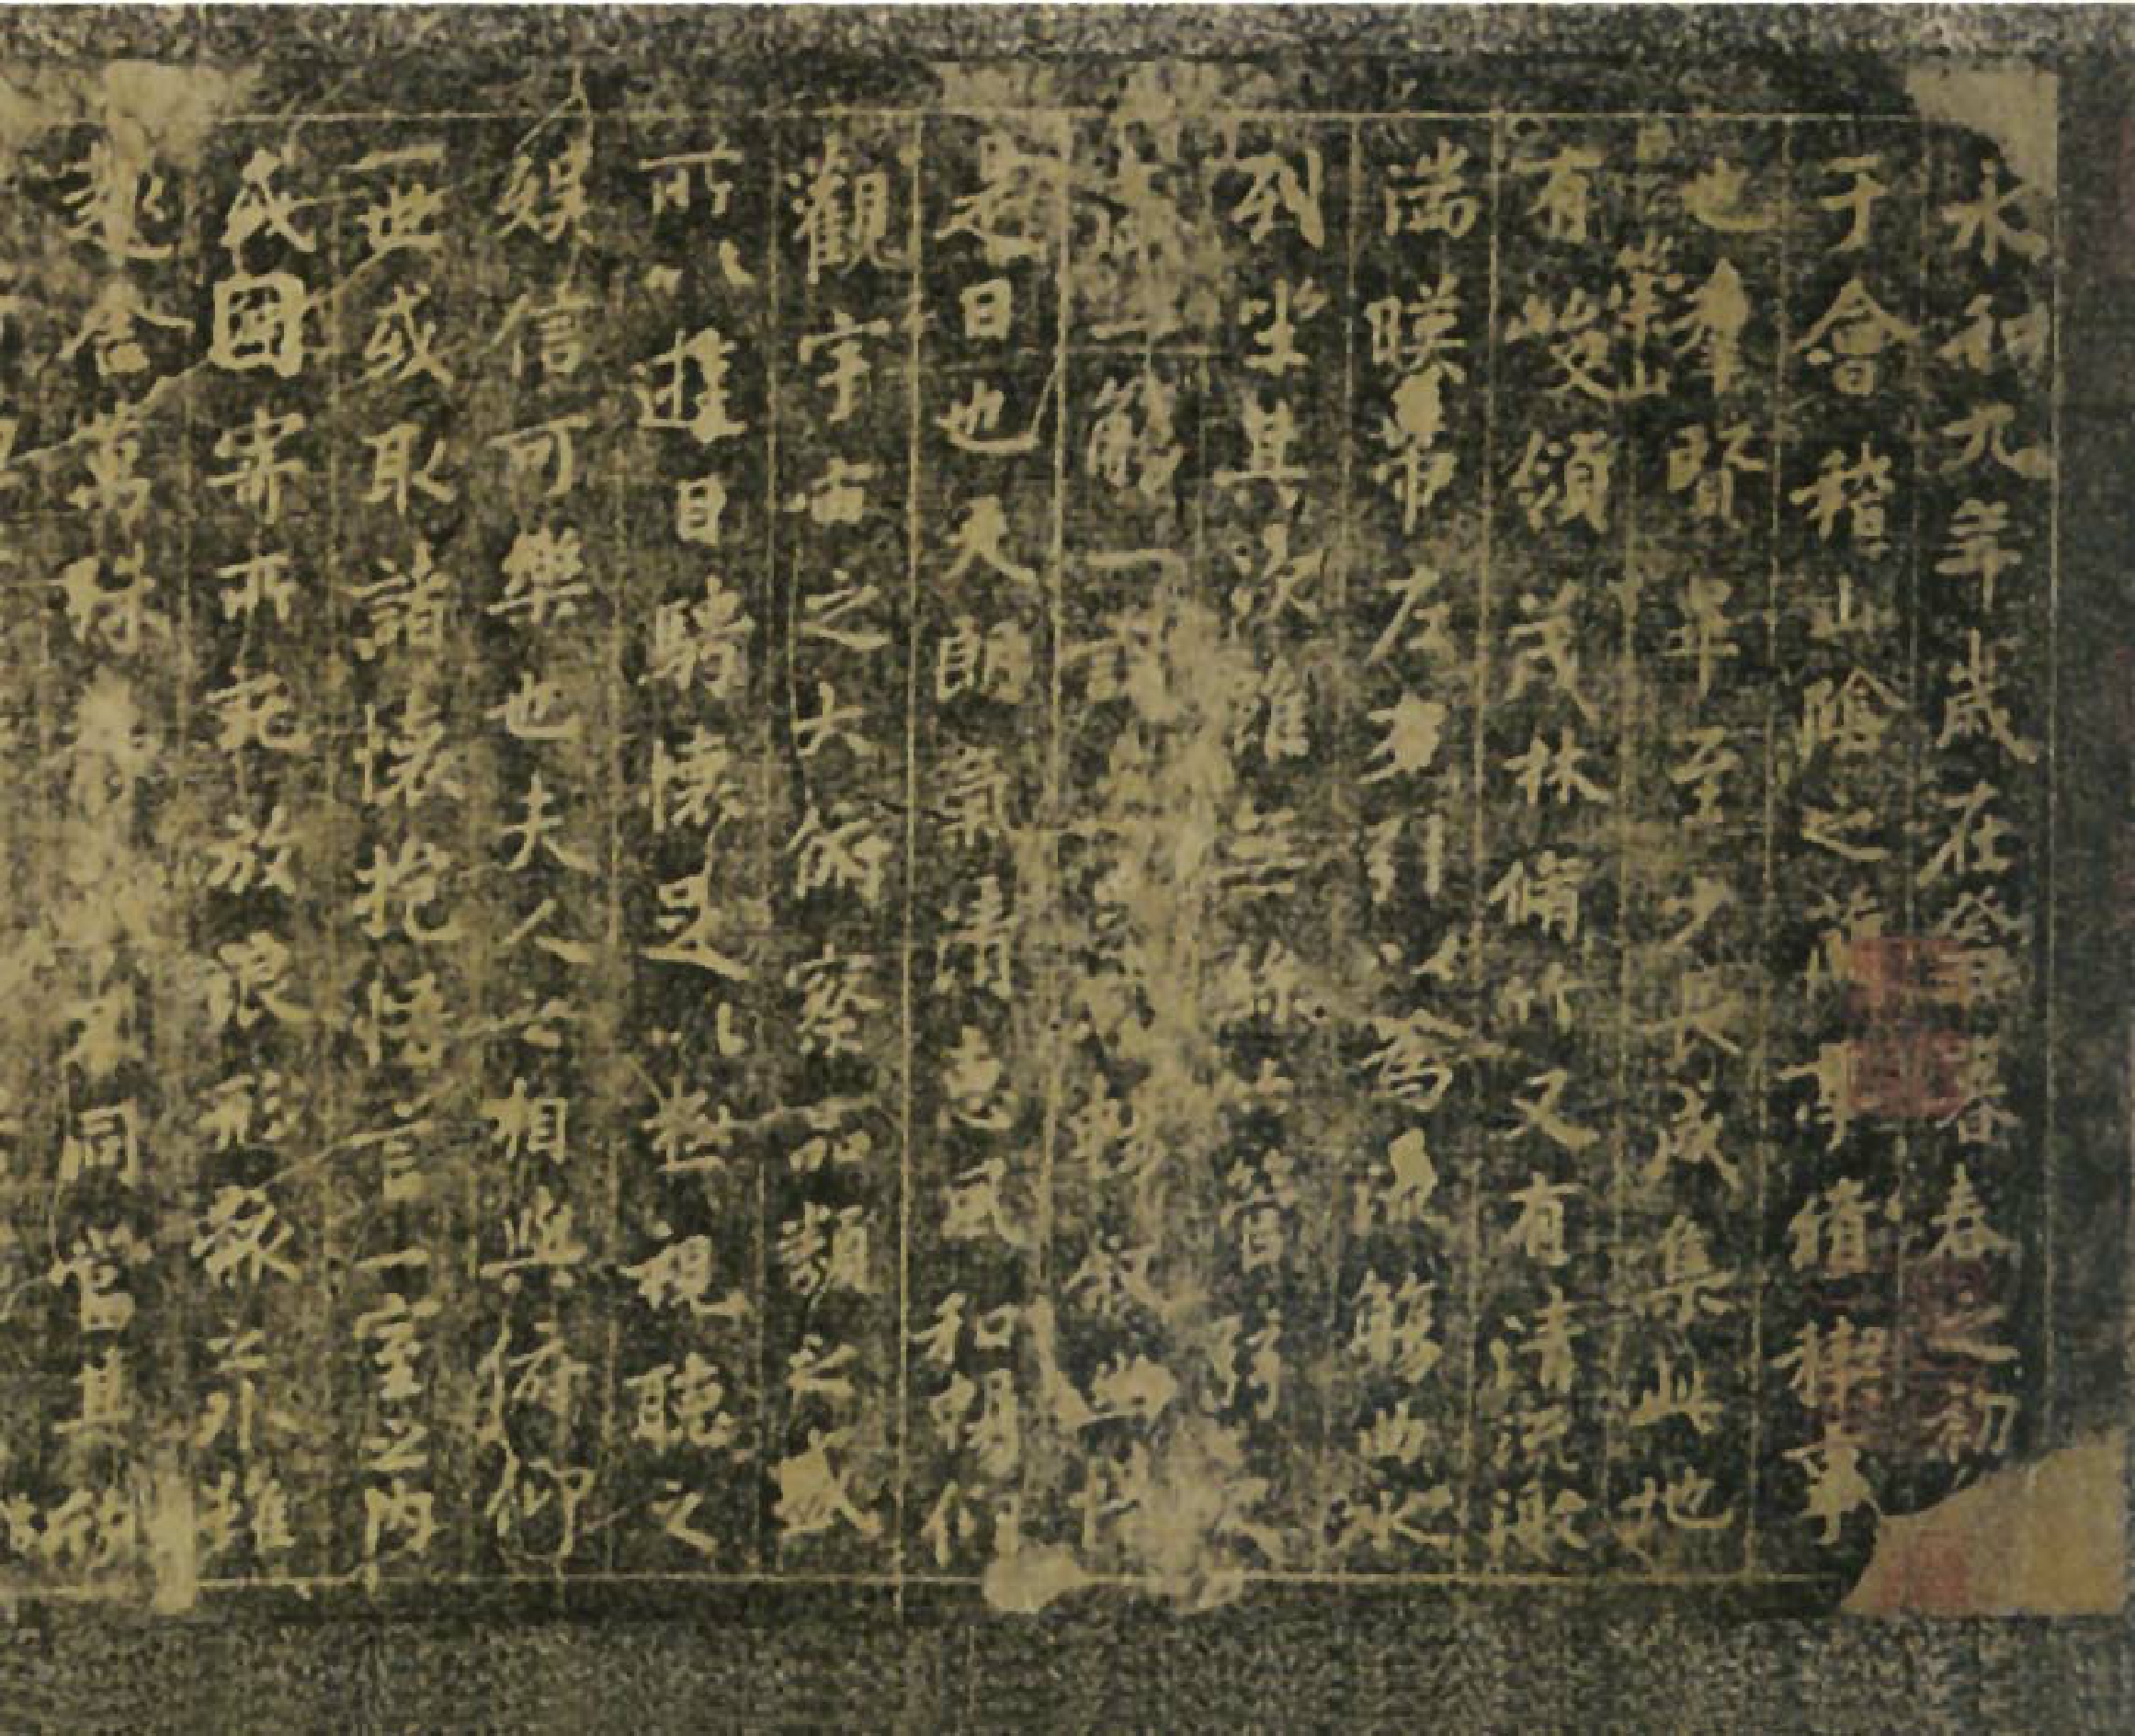 永和九年歲在癸丑暮春之初
于會稽山陰之蘭亭脩稧事
也羣賢畢至少長咸集此地
崇山
有峻領茂林脩竹又有清流激
湍暎帶左右引以為流觴曲水
列坐其次雖無絲竹管弦
一觴一詠亦足以暢敘幽情
是日也天朗氣清惠風和暢仰
觀宇宙之大俯察品類之盛
所以遊目騁懷足以極視聽之
娛信可樂也夫人之相與俯仰
一世或取諸懷抱悟言一室之內
或因寄所託放浪形骸之外雖
趣舍萬殊靜不同當其欣